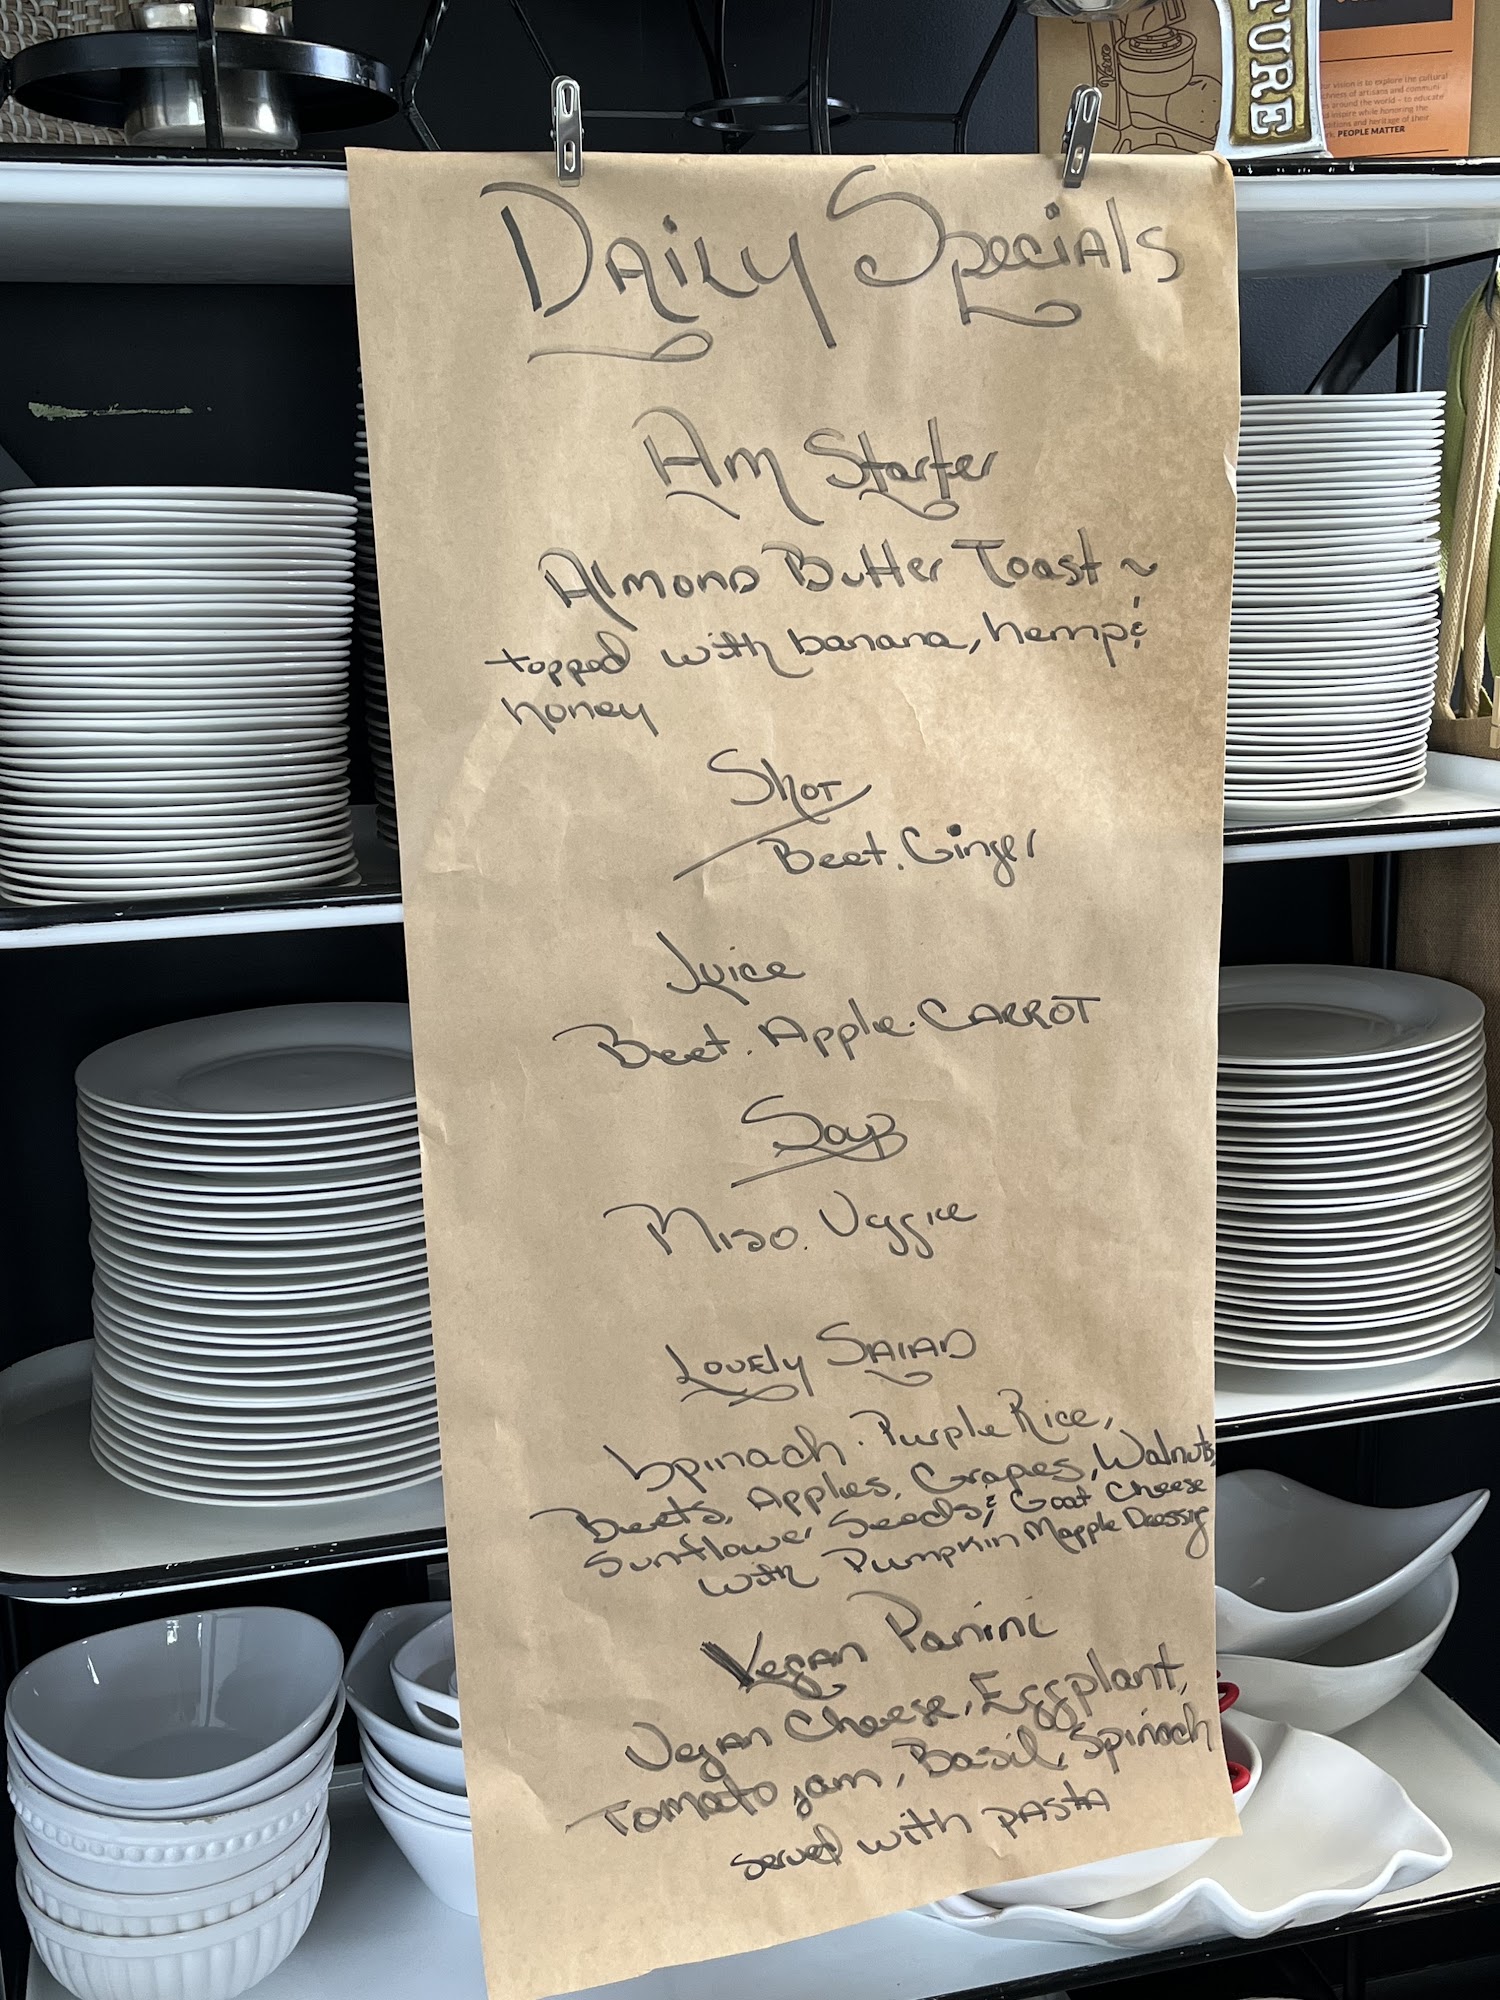 TURE
Vervo
our vision is to explore the cultural
richness of artisans and communi-
around the world - to educate
inspire while honoring the
traditions and heritage of their
PEOPLE MATTER
DAiLy SpeciAls
Am Starter
Almond Butter Toast ~
topped with banana, hemp &
honey
Shot
Beet. Ginger
Juice
Beet. Apple. CARROT
Soup
Miso. Veggie
Lovely SAlAD
Spinach. Purple Rice,
Beets, Apples, Grapes, Walnuts,
Sunflower Seeds, & Goat Cheese
with Pumpkin Mapple Dressig
Vegan Panini
Vegan Cheese, Eggplant,
Tomato jam, Basil, Spinach
served with PASTA